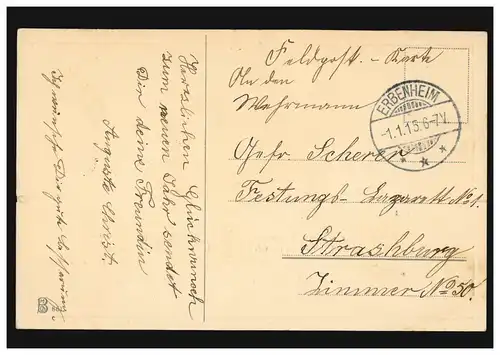 Herzlichen Glückwunsch
zum neuen Jahr sendet
Dir deine Freundin
Auguste Christ.
Ich wünsche Dir gute Besserung
Feldpost.-Karte
An den
Wehrmann
Gefr. Scherer
Festungs-Lazarett No 1.
Strassburg
Zimmer No 50.
ERBENHEIM
-1.1.15.6-7V.
B